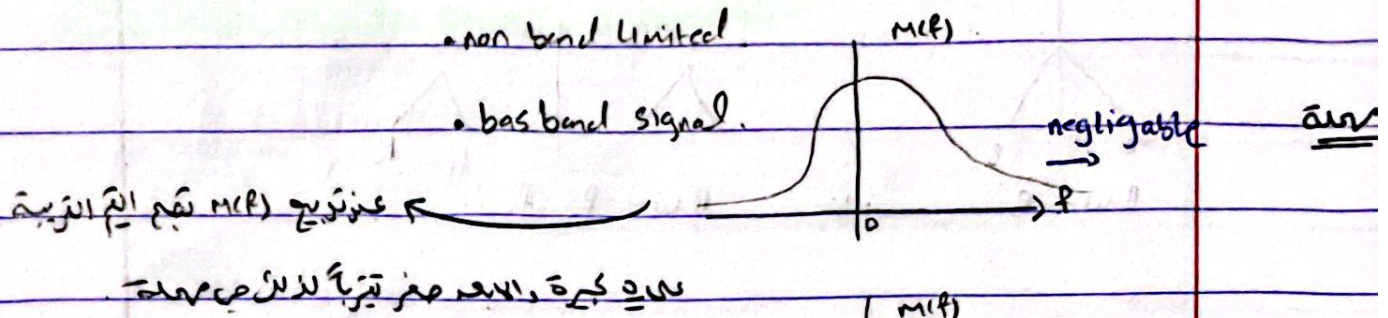 • non band limited.
M(f)
• bas band signal.
negligable
f
0
عند تربيع M(f) تصبح القيم القريبة
كبيرة والابعد صفر تقريباً لذلك
M(f)